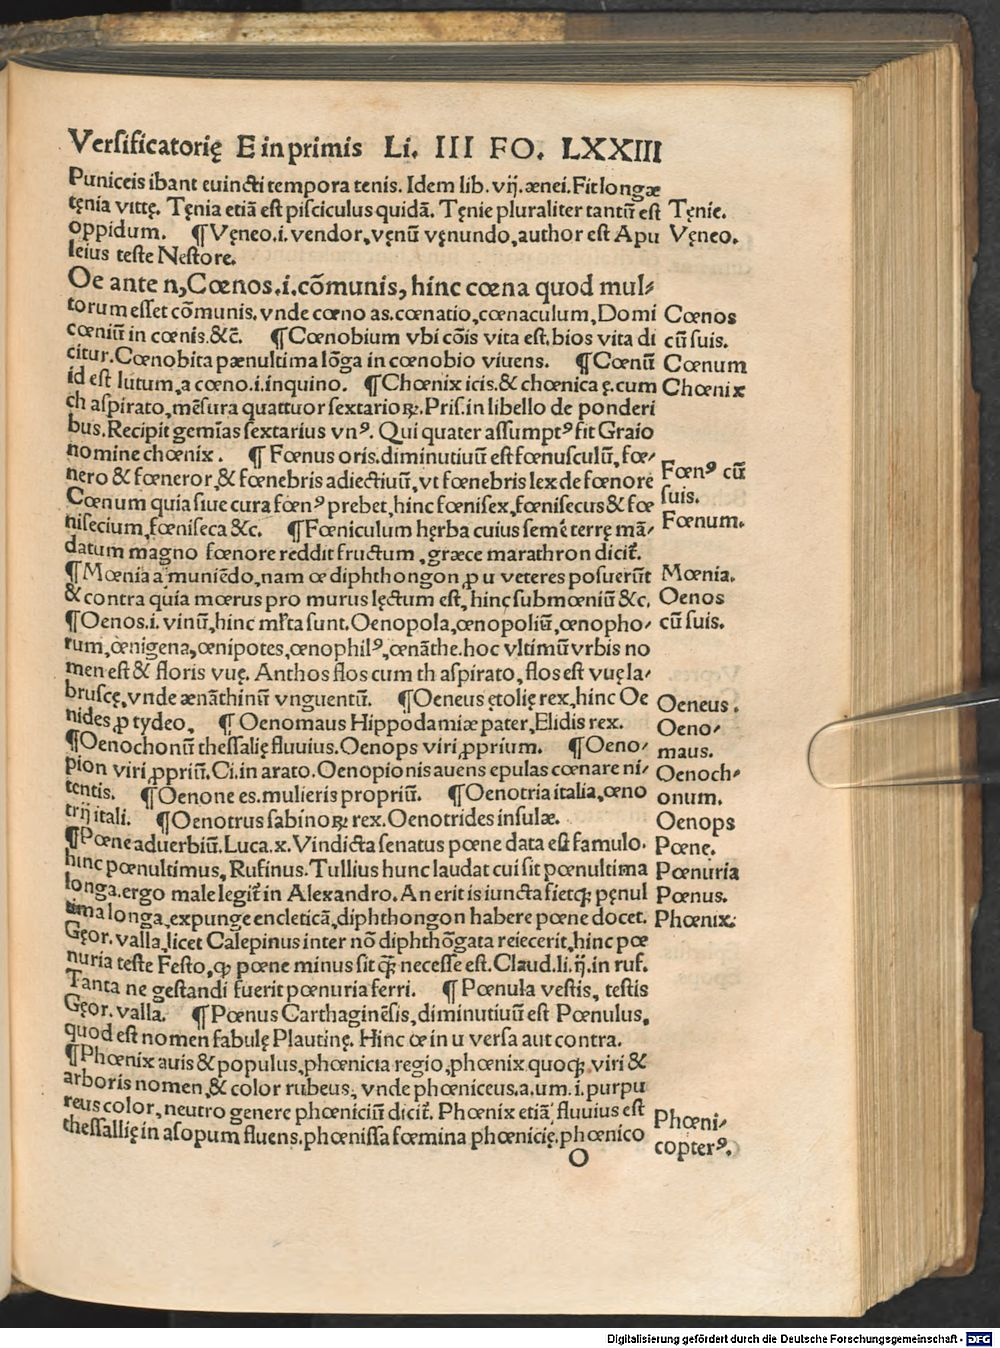 Versificatorię E in primis Li. III FO. LXXIII
Puniceis ibant euincti tempora tenis. Idem lib. vij. ænei. Fit longæ
tęnia vittę. Tęnia etiā est pisciculus quidā. Tęnie pluraliter tantū est
Tęnie.
oppidum. ¶ Vęneo .i. vendor, vęnū vęnundo, author est Apu
Vęneo.
leius teste Nestore.
Oe ante n, Cœnos .i. cōmunis, hinc cœna quod mul⸗
torum esset cōmunis. vnde cœno as. cœnatio, cœnaculum, Domi
Cœnos
cœniū in cœnis. &c̄. ¶ Cœnobium vbi cōis vita est. bios vita di
cū suis.
citur. Cœnobita pænultima lōga in cœnobio viuens. ¶ Cœnū
Cœnum
id est lutum, a cœno .i. inquino. ¶ Chœnix icis. & chœnica ę. cum
Chœnix
ch aspirato, mēsura quattuor sextarioꝝ. Pris. in libello de ponderi
bus. Recipit gemīas sextarius vnꝰ. Qui quater assumptꝰ fit Graio
nomine chœnix. ¶ Fœnus oris. diminutiuū est fœnusculū, fœ⸗
Fœnꝰ cū
nero & fœneror, & fœnebris adiectiuū, vt fœnebris lex de fœnore
suis.
Cœnum quia siue cura fœnꝰ prebet, hinc fœnisex, fœnisecus & fœ
Fœnum.
nisecium, fœniseca &c. ¶ Fœniculum hęrba cuius semē terrę mā⸗
datum magno fœnore reddit fructum, græce marathron dicit᷑.
¶ Mœnia a muniēdo, nam œ diphthongon ꝓ u veteres posuerūt
Mœnia.
& contra quia mœrus pro murus lęctum est, hinc submœniū &c.
Oenos
¶ Oenos .i. vinū, hinc ml̄ta sunt. Oenopola, œnopoliū, œnopho⸗
cū suis.
rum, œnigena, œnipotes, œnophilꝰ, œnāthe. hoc vltimū vrbis no
men est & floris vuę. Anthos flos cum th aspirato, flos est vuę la⸗
bruscę, vnde ænāthinū vnguentū. ¶ Oeneus ętolię rex, hinc Oe
Oeneus.
nides, ꝓ tydeo. ¶ Oenomaus Hippodamiæ pater, Elidis rex.
Oeno⸗
maus.
¶ Oenochonū thessalię fluuius. Oenops viri ꝓprium. ¶ Oeno⸗
pion viri ꝓpriū. Ci. in arato. Oenopionis auens epulas cœnare ni⸗
Oenoch⸗
tentis. ¶ Oenone es. mulieris propriū. ¶ Oenotria italia, œno
onum.
trij itali. ¶ Oenotrus sabinoꝝ rex. Oenotrides insulæ.
Oenops
¶ Pœne aduerbiū. Luca. x. Vindicta senatus pœne data est famulo.
Pœne.
hinc pœnultimus, Rufinus. Tullius hunc laudat cui sit pœnultima
Pœnuria
longa. ergo male legit᷑ in Alexandro. An erit is iuncta fietqꝫ pęnul
Pœnus.
tima longa, expunge encleticā, diphthongon habere pœne docet.
Phœnix.
Geor. valla, licet Calepinus inter nō diphthōgata reiecerit, hinc pœ
nuria teste Festo, ꝙ pœne minus sit q̄ꝫ necesse est. Claud. li. ij. in ruf.
Tanta ne gestandi fuerit pœnuria ferri. ¶ Pœnula vestis, testis
Geor. valla. ¶ Pœnus Carthaginēsis, diminutiuū est Pœnulus,
quod est nomen fabulę Plautinę. Hinc œ in u versa aut contra.
¶ Phœnix auis & populus, phœnicia regio, phœnix quoqꝫ viri &
arboris nomen, & color rubeus, vnde phœniceus, a. um .i. purpu
reus color, neutro genere phœniciū dicit᷑. Phœnix etiā fluuius est
Phœni⸗
thessallię in asopum fluens. phœnissa fœmina phœnicię. phœnico
copterꝰ.
O
Digitalisierung gefördert durch die Deutsche Forschungsgemeinschaft - DFG